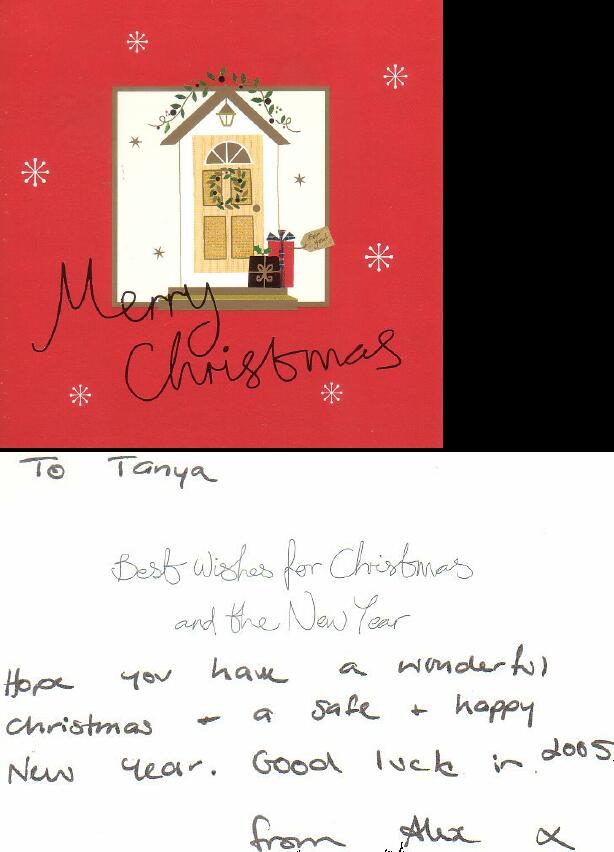 For
you!
Merry
Christmas
To Tanya
Best Wishes for Christmas
and the New Year
Hope you have a wonderful
christmas + a safe + happy
New Year. Good luck in 2005.
from Alex x